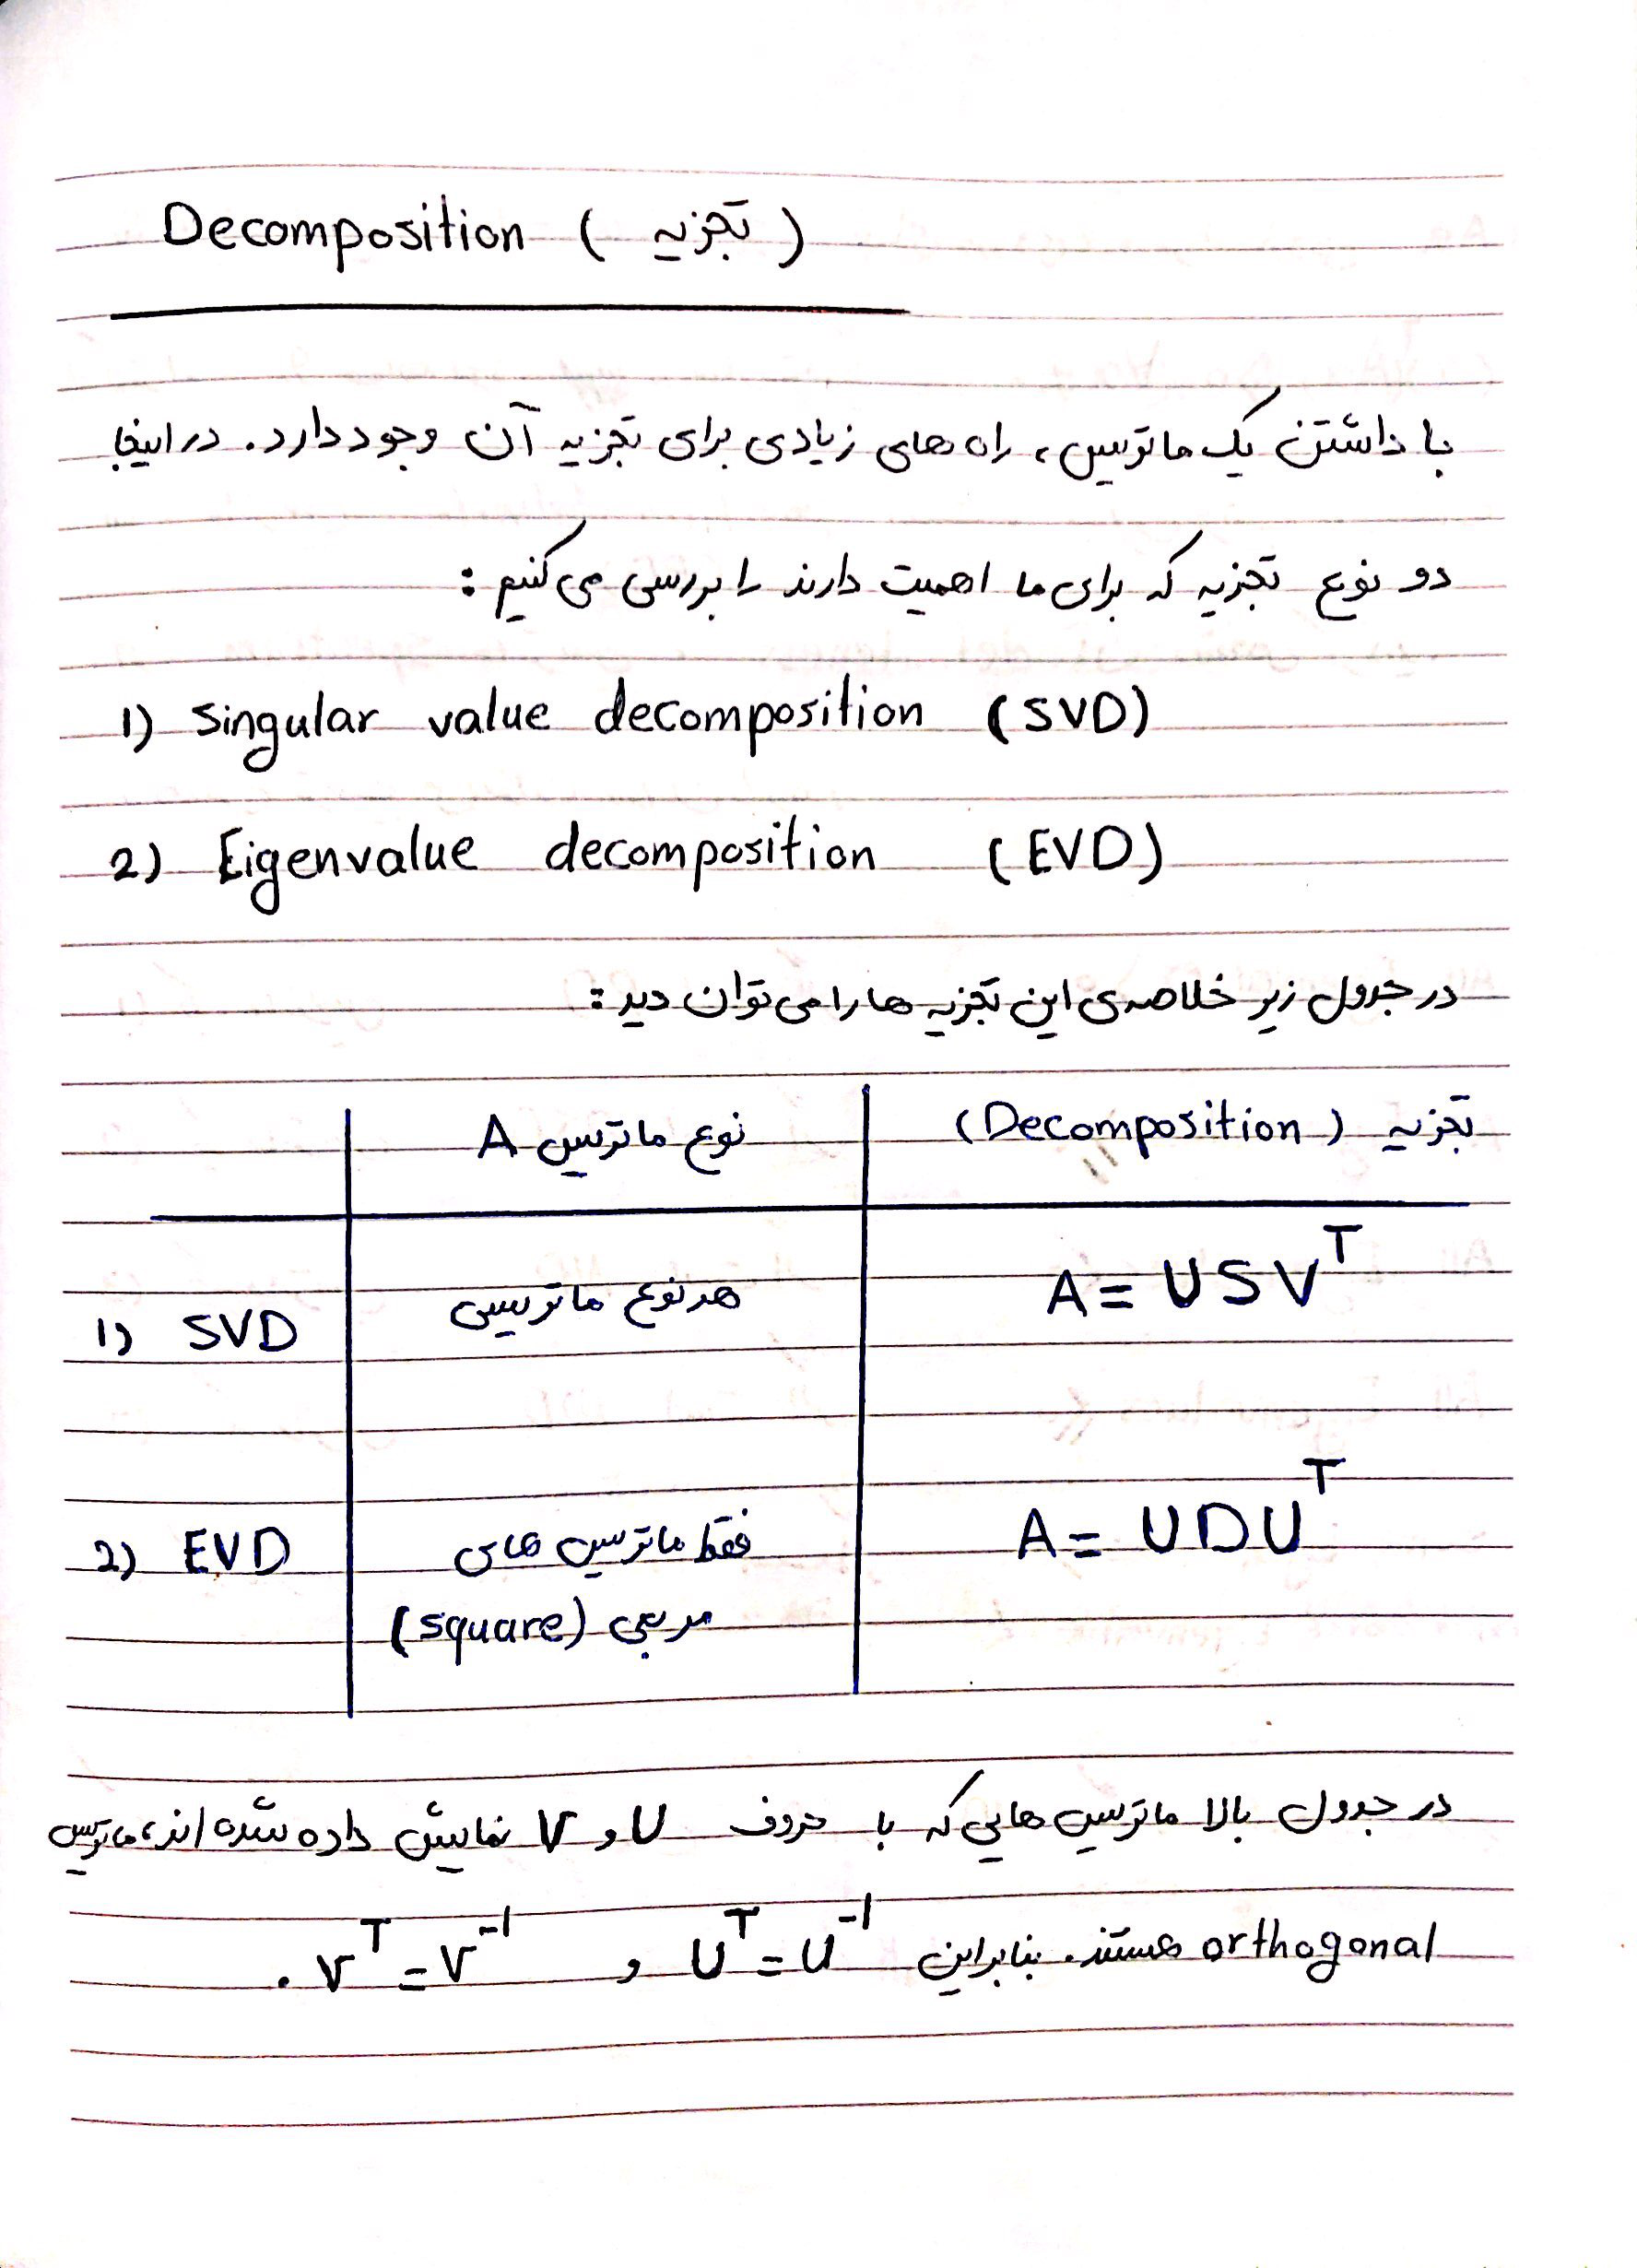 Decomposition ( تجزیه )
با داشتن یک ماتریس، راه های زیادی برای تجزیه آن وجود دارد. در اینجا
دو نوع تجزیه که برای ما اهمیت دارند را بررسی می کنیم :
1) Singular value decomposition (SVD)
2) Eigenvalue decomposition (EVD)
در جدول زیر خلاصه ی این تجزیه ها را می توان دید :
نوع ماتریس A تجزیه (Decomposition)
1) SVD هر نوع ماتریسی A = USV^T
2) EVD فقط ماتریس های A = UDU^T
مربعی (square)
در جدول بالا ماتریس هایی که با حروف U و V نمایش داده شده اند، ماتریس
orthogonal هستند. بنابراین U^T = U^-1 و V^T = V^-1 .